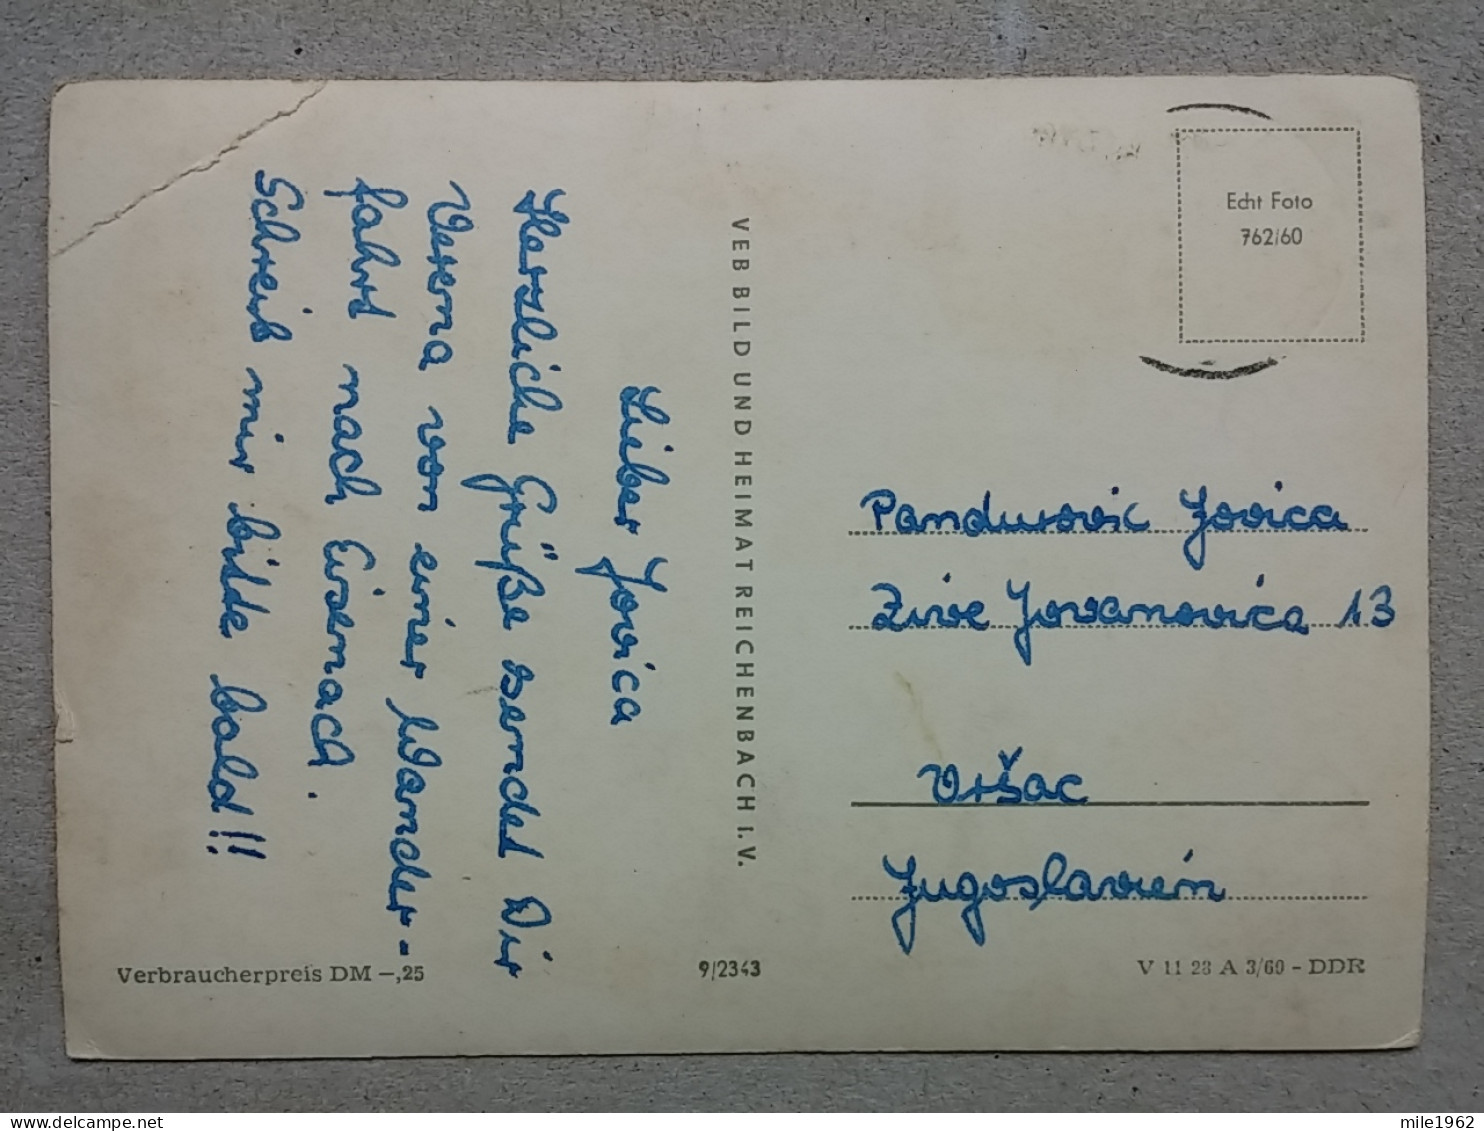 Lieber Jovica
Herzliche Grüße sendet Dir
Verena von einer Wander-
fahrt nach Eisenach.
Schreib mir bitte bald!!
VEB BILD UND HEIMAT REICHENBACH I. V.
Echt Foto
762/60
Pandurovic Jovica
Zive Jovanovica 13
Vršac
Jugoslavien
Verbraucherpreis DM —,25
9/2343
V 11 28 A 3/60 - DDR
mile1962